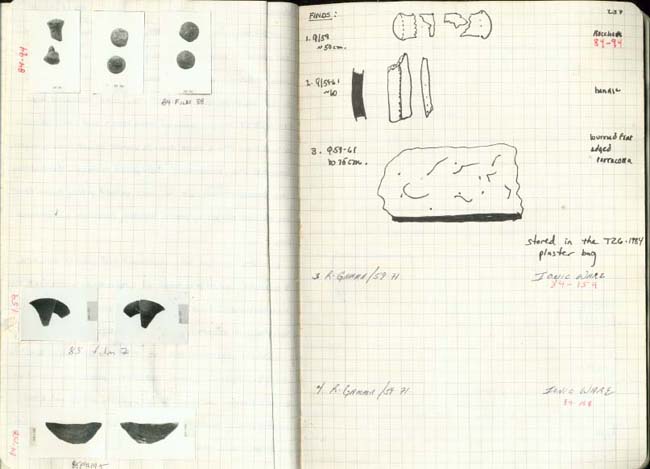 84-94
84-Film 38
84-158
FINDS:
1. Q/59
~50cm.
84-94
2. Q/59-61
~60
handle
3. Q59-61
to 75cm.
burned flat
edged
terracotta
stored in the T26-1984
plaster bag
3. R-Gamma/59 71
IONIC WARE
84-159
4. R-Gamma/59 71
IONIC WARE
84-158